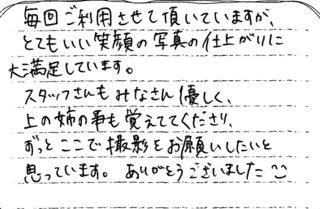 毎回ご利用させて頂いていますが、
とてもいい笑顔の写真の仕上がりに
大満足しています。
スタッフさんもみなさん優しく、
上の姉の事も覚えててくださり、
ずっとここで撮影をお願いしたいと
思っています。ありがとうございました